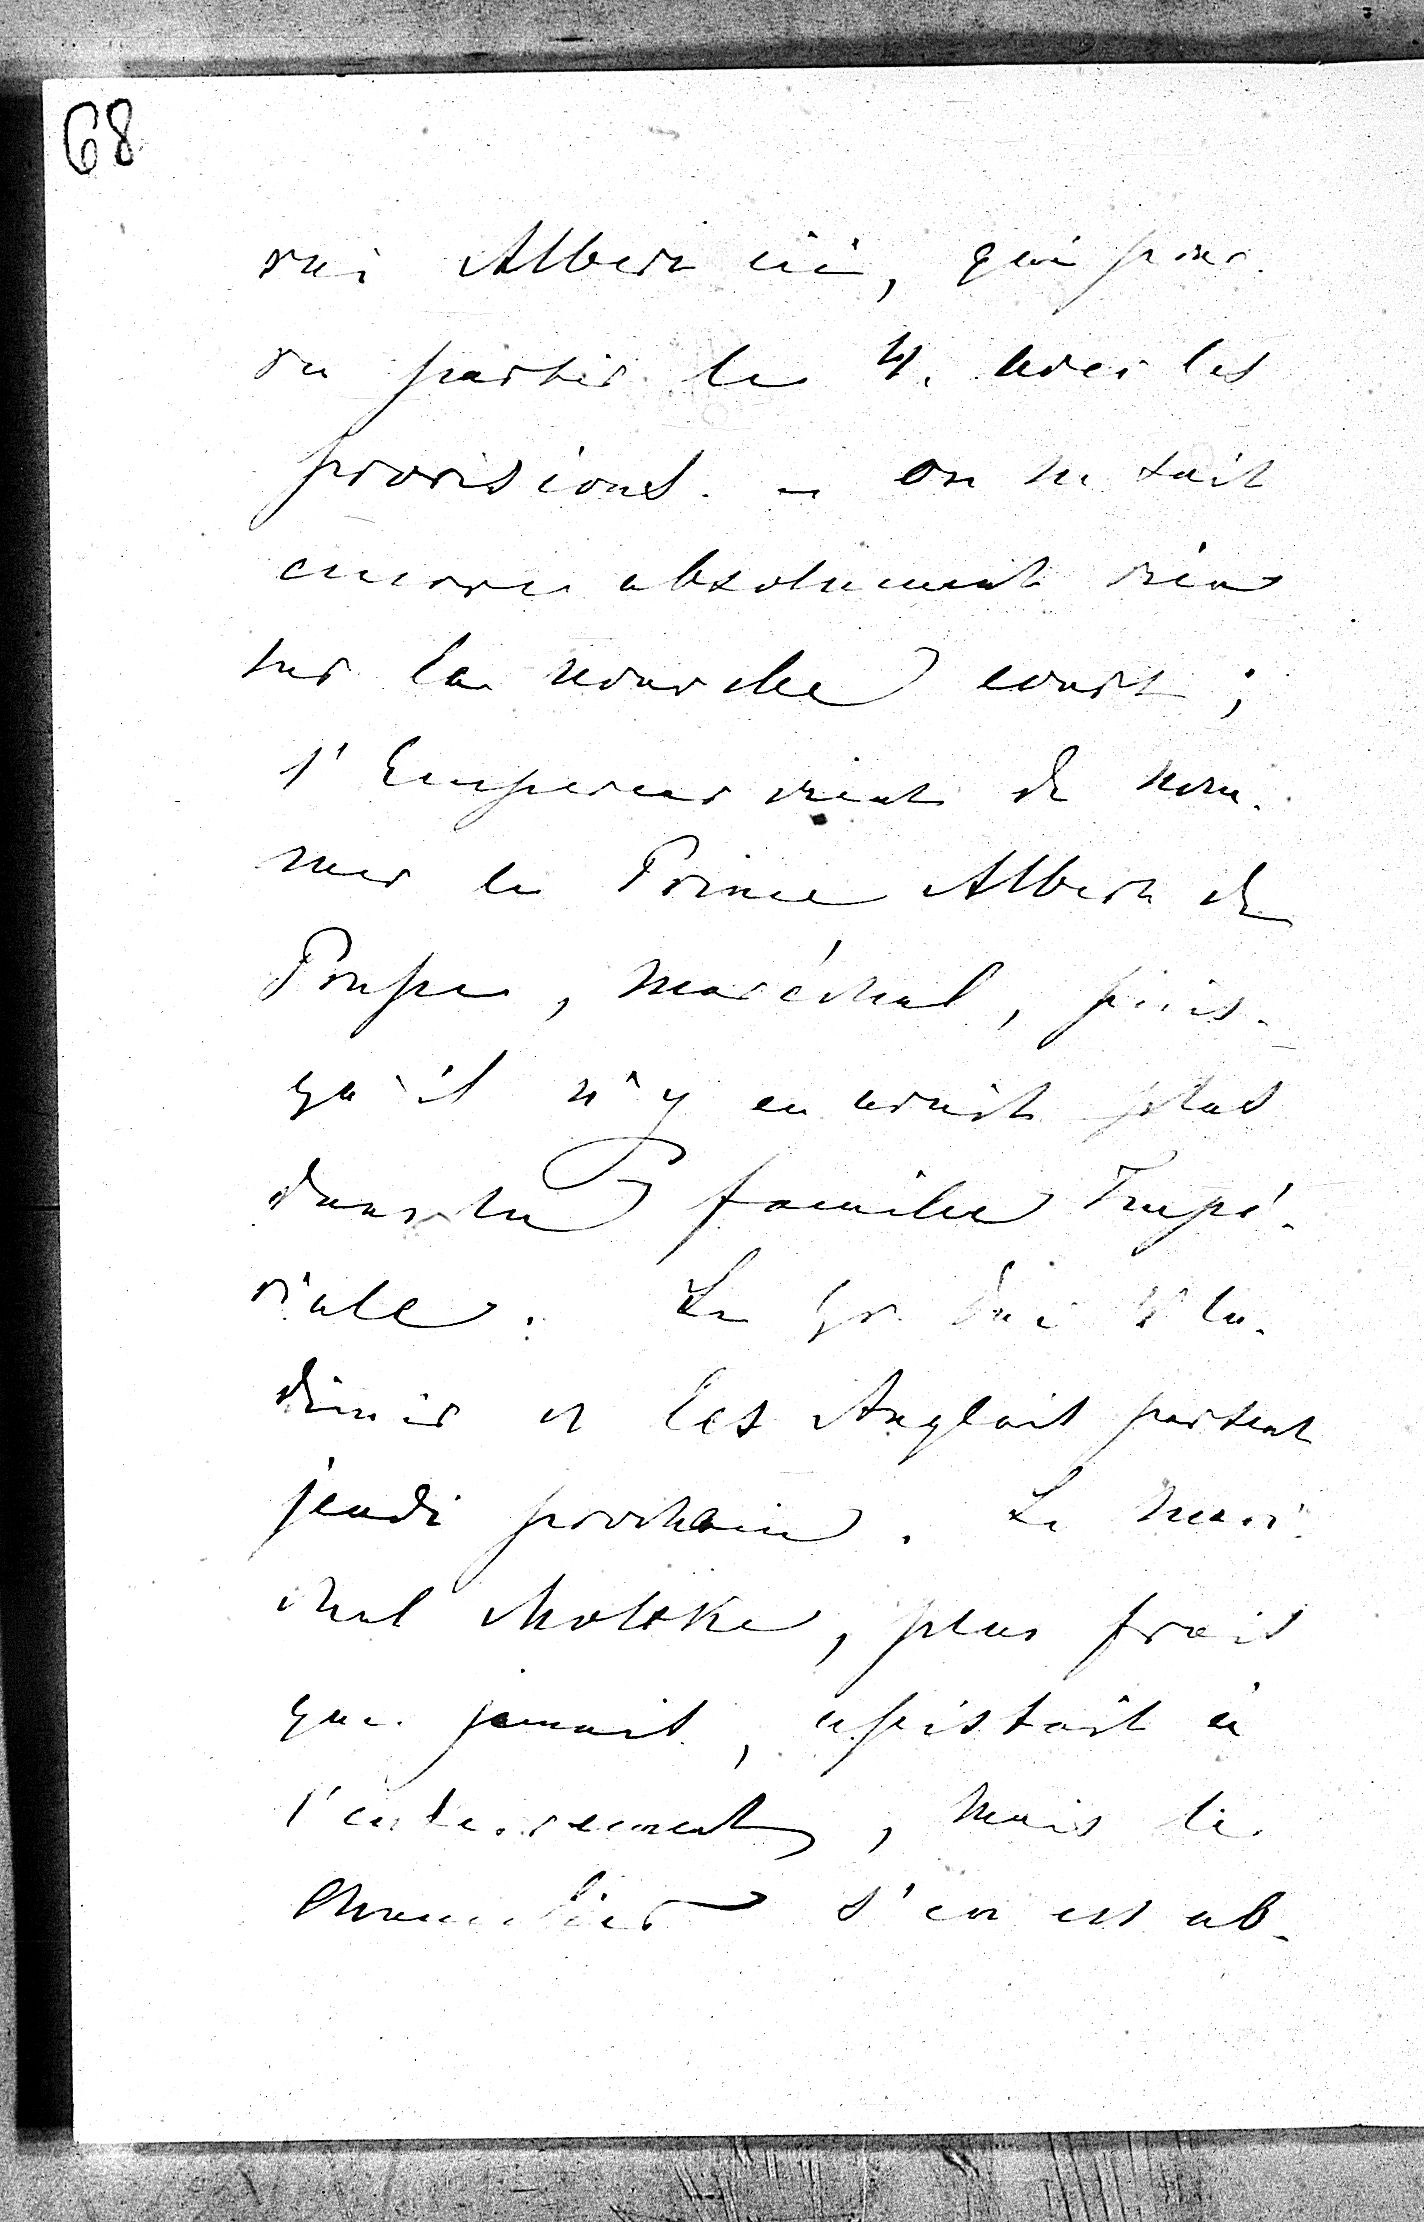 68
rai Albert ici, qui pour
ra partir le 4. avec les
provisions. – on ne sait
encore absolument rien
sur la nouvelle court ;
l'Empereur vient de nom-
mer le Prince Albert de
Prusse, maréchal, puis-
qu'il n'y en avait plus
dans la famille Impé-
riale. Le Gr. Duc Vla-
dimir et les Anglais partent
jeudi prochain. Le maré
chal Moltke, plus frais
que jamais, assistait à
l'enterrement, mais le
Chancelier s'en est ab-